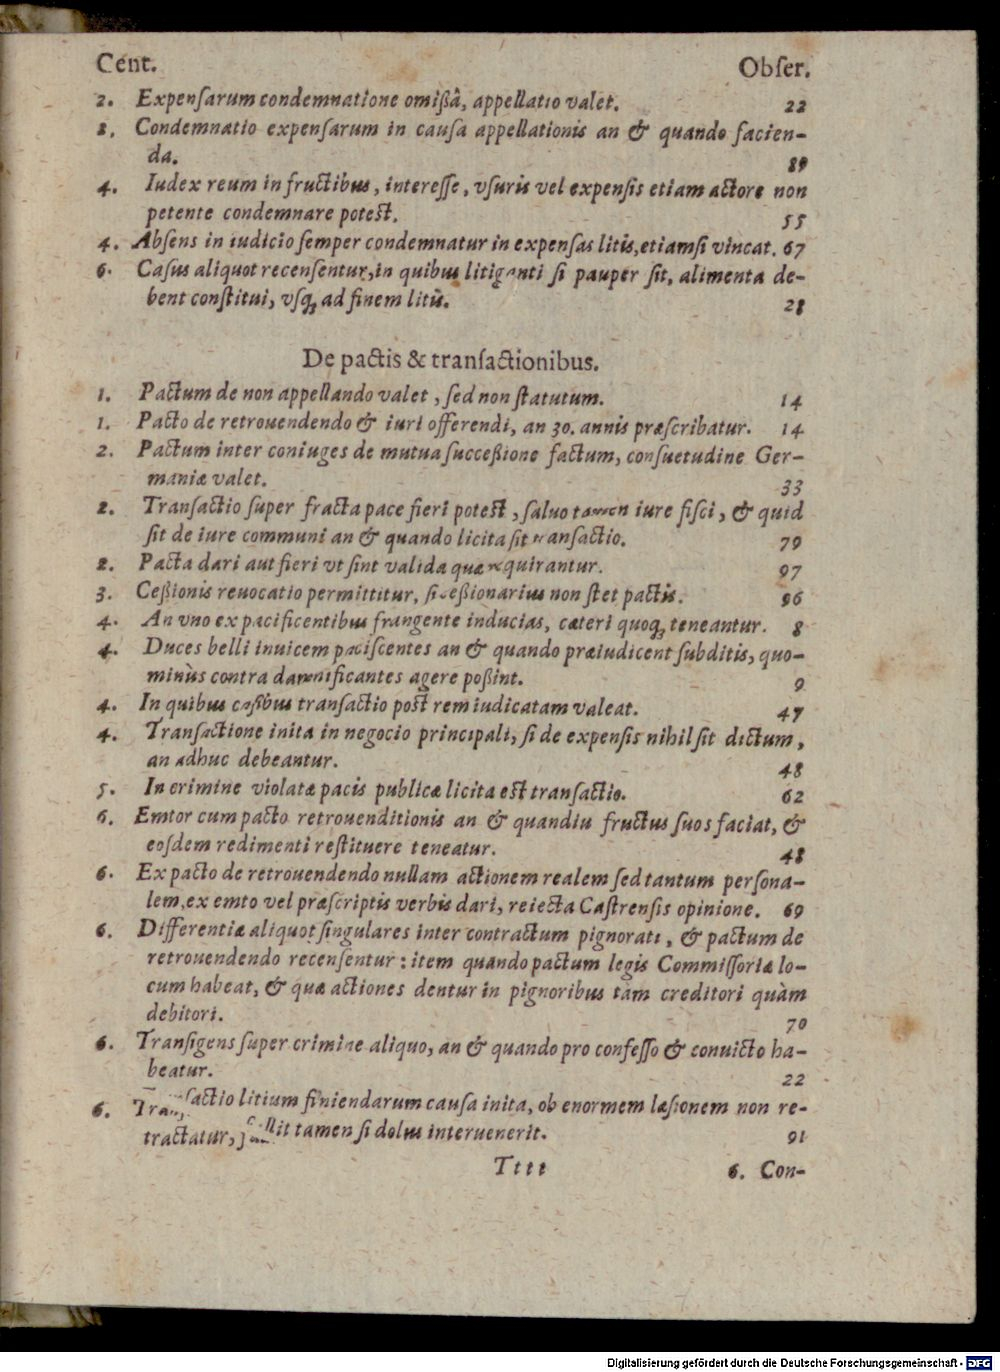 Cent. Obſer.
2. Expenſarum condemnatione omißâ, appellatio valet. 22
2. Condemnatio expenſarum in cauſa appellationis an & quando facien-
da. 89
4. Iudex reum in fructibus, intereſſe, vſuris vel expenſis etiam actore non
petente condemnare potest. 55
4. Abſens in iudicio ſemper condemnatur in expenſas litis, etiamſi vincat. 67
6. Caſus aliquot recenſentur, in quibus litiganti ſi pauper ſit, alimenta de-
bent conſtitui, vſq; ad finem litis. 28
De pactis & tranſactionibus.
1. Pactum de non appellando valet, ſed non ſtatutum. 14
1. Pacto de retrouendendo & iuri offerendi, an 30. annis præſcribatur. 14
2. Pactum inter coniuges de mutua ſucceßione factum, conſuetudine Ger-
maniæ valet. 33
2. Tranſactio ſuper fracta pace fieri potest, ſaluo tamen iure fiſci, & quid
ſit de iure communi an & quando licita ſit tranſactio. 79
2. Pacta dari aut fieri vt ſint valida quæ requirantur. 97
3. Ceßionis reuocatio permittitur, ſi ceßionarius non ſtet pactis. 96
4. An vno ex pacificentibus frangente inducias, cæteri quoq; teneantur. 8
4. Duces belli inuicem paciſcentes an & quando præiudicent ſubditis, quo-
minùs contra damnificantes agere poßint. 9
4. In quibus caſibus tranſactio post rem iudicatam valeat. 47
4. Tranſactione inita in negocio principali, ſi de expenſis nihil ſit dictum,
an adhuc debeantur. 48
5. In crimine violatæ pacis publicæ licita est tranſactio. 62
6. Emtor cum pacto retrouenditionis an & quandiu fructus ſuos faciat, &
eoſdem redimenti reſtituere teneatur. 48
6. Ex pacto de retrouendendo nullam actionem realem ſed tantum perſona-
lem, ex emto vel præſcriptis verbis dari, reiecta Caſtrenſis opinione. 69
6. Differentiæ aliquot ſingulares inter contractum pignorati, & pactum de
retrouendendo recenſentur: item quando pactum legis Commiſſoriæ lo-
cum habeat, & quæ actiones dentur in pignoribus tàm creditori quàm
debitori. 70
6. Tranſigens ſuper crimine aliquo, an & quando pro confeſſo & conuicto ha-
beatur. 22
6. Tranſactio litium finiendarum cauſa inita, ob enormem læſionem non re-
tractatur, fallit tamen ſi dolus interuenerit. 91
Tttt 6. Con-
Digitalisierung gefördert durch die Deutsche Forschungsgemeinschaft - DFG